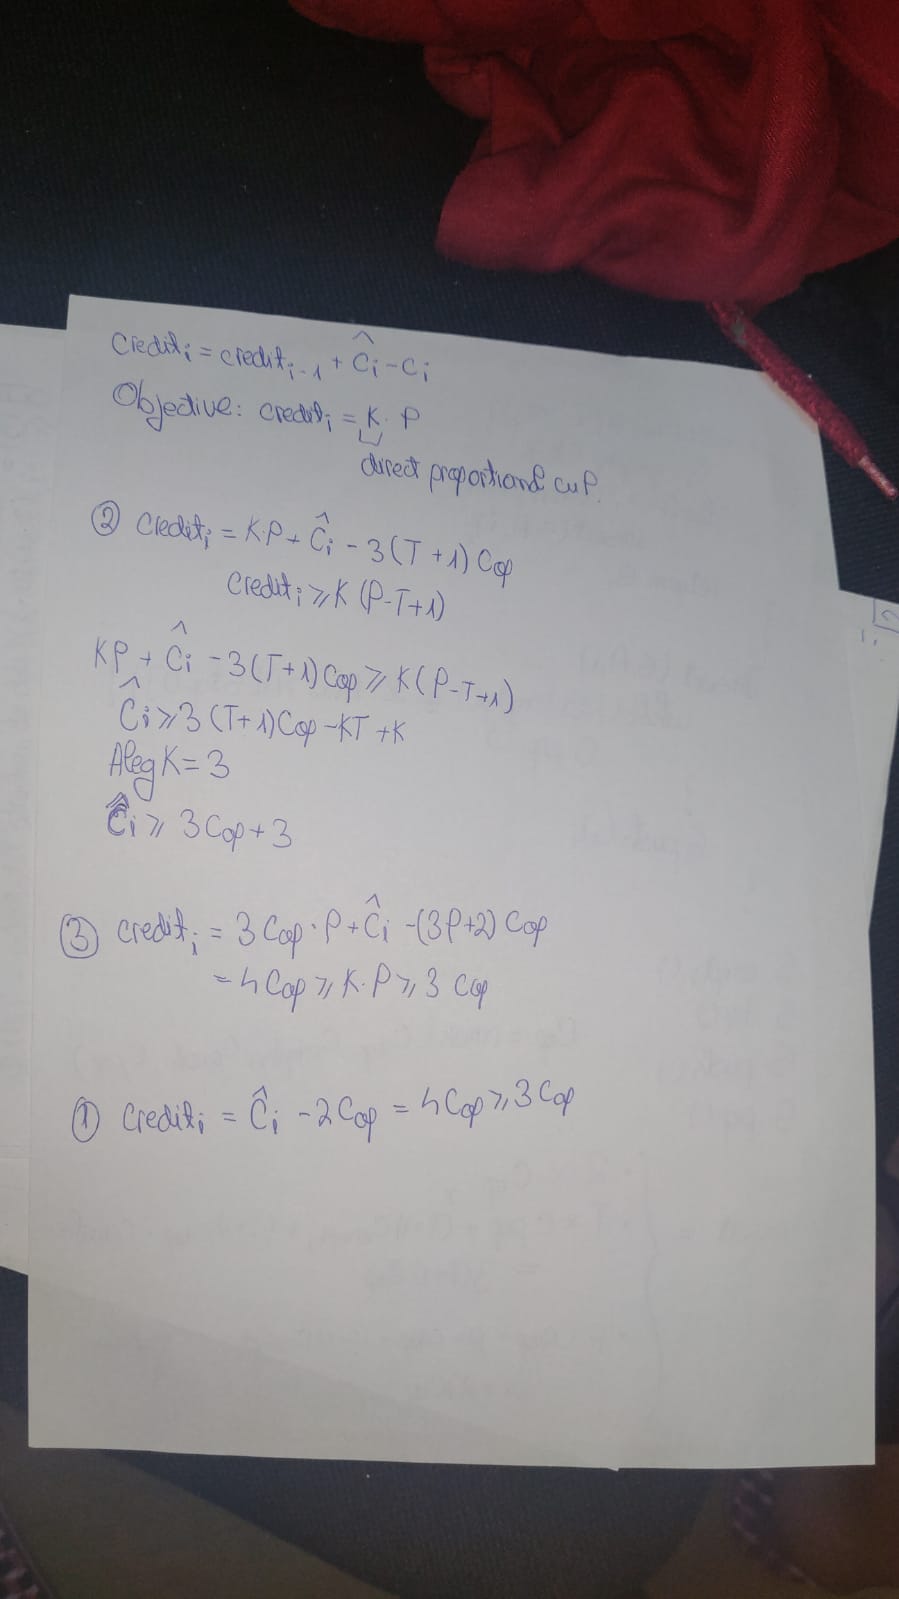 Credit_i = credit_{i-1} + Ĉi - Ci
Objective: credit_i = K · P
direct proportional cu P.
② Credit_i = K·P + Ĉi - 3(T+1) Cop
Credit_i ⩾ K (P-T+1)
KP + Ĉi - 3(T+1) Cop ⩾ K(P-T+1)
Ĉi ⩾ 3 (T+1)Cop - KT + K
Aleg K = 3
Ĉi ⩾ 3Cop + 3
③ Credit_i = 3 Cop · P + Ĉi - (3P+2) Cop
= 4 Cop ⩾ K·P ⩾ 3 Cop
① Credit_i = Ĉi - 2Cop = 4Cop ⩾ 3Cop